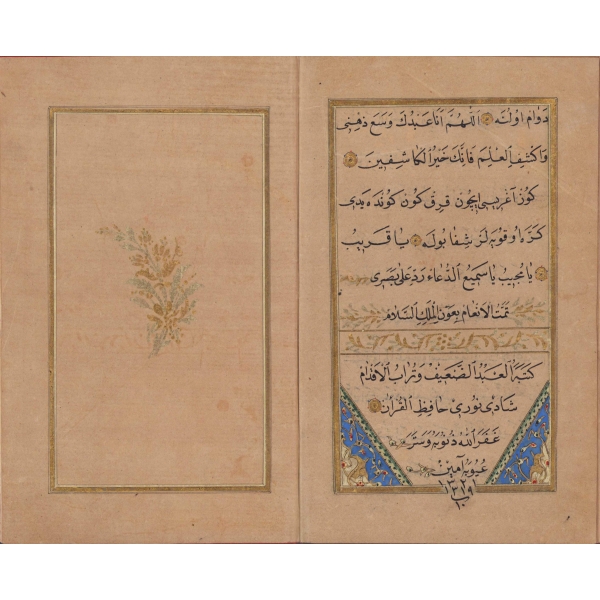 دوام اولنه اللهم انا عبدك وسع ذهنى
واكشف العلم فانك خير الكاشفين
كوز آغريسى ايچون قرق كون كونده يدى
كره اوقويه لر شفا بوله يا قريب
يا مجيب يا سميع الدعاء رد على بصرى
تمت الانعام بعون الملك السلام
كتبه العبد الضعيف وتراب الاقدام
شادى نورى حافظ القرآن
غفر الله ذنوبه وستر
عيوبه آمين